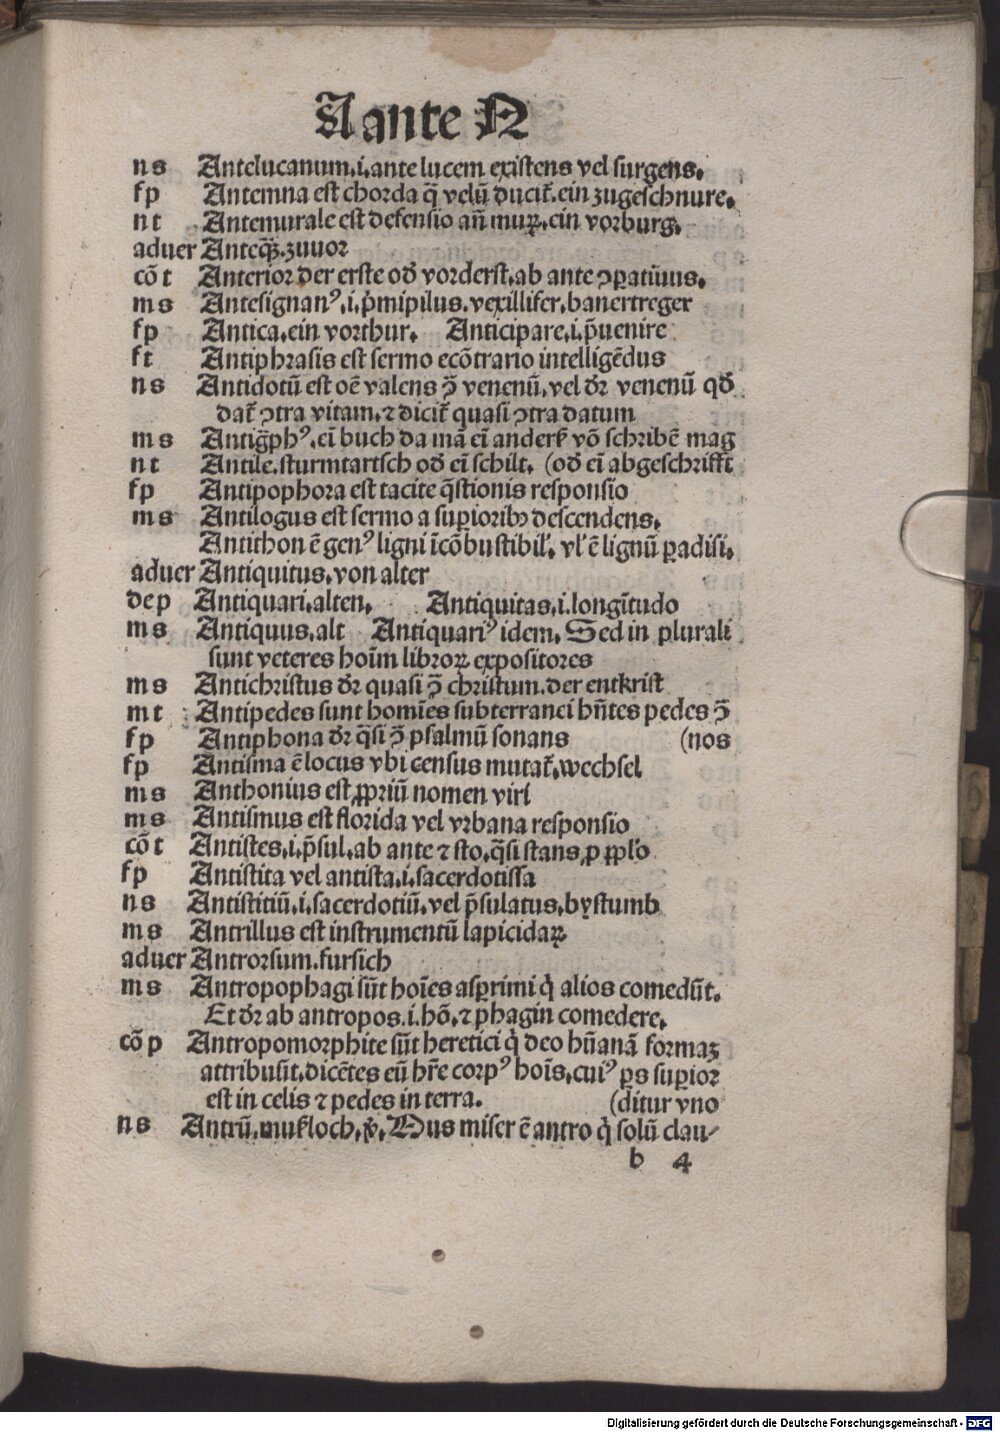 A ante N
n s Antelucanum.i.ante lucem existens vel surgens.
f p Antemna est chorda q̄ velū ducit̄.ein zugeschnure.
n t Antemurale est defensio añ muꝝ.ein vorburg.
aduer Anteqꝫ.zuuor
cō t Anterior der erste od̄ vorderst.ab ante ꝯparatiuus.
m s Antesignanꝰ.i.p̄mipilus.vexillifer.banertreger
f p Antica.ein vorthur. Anticipare.i.p̄uenire
f t Antiphrasis est sermo ecōtrario intelligēdus
n s Antidotū est oē valens ꝯ̄ venenū.vel dr̄ venenū qd̄
dat̄ ꝯtra vitam.⁊ dicit̄ quasi ꝯtra datum
m s Antigp̄hꝰ.eī buch da mā eī anderß vō schribē mag
n t Antile.sturmtartsch od̄ eī schilt. (od̄ eī abgeschrifft
f p Antipophora est tacite q̄stionis responsio
m s Antilogus est sermo a superioribꝫ descendens.
Antithon ē genꝰ ligni īcōbustibil'. vl' ē lignū ꝑadisi.
aduer Antiquitus.von alter
dep Antiquari.alten. Antiquitas.i.longītudo
m s Antiquus.alt Antiquariꝰ idem. Sed in plurali
sunt veteres hoīm libroꝝ expositores
m s Antichristus dr̄ quasi ꝯ̄ christum.der entkrist
m t Antipedes sunt homīes subterranei hn̄tes pedes ꝯ̄
f p Antiphona dr̄ q̄si ꝯ̄ psalmū sonans (nos
f p Antisma ē locus vbi census mutat̄.wechsel
m s Anthonius est ꝓpriū nomen viri
m s Antismus est florida vel vrbana responsio
cō t Antistes.i.p̄sul.ab ante ⁊ sto.q̄si stans ꝓ ppl'o
f p Antistita vel antista.i.sacerdotissa
n s Antistitiū.i.sacerdotiū.vel p̄sulatus.bystumb
m s Antrillus est instrumentū lapicidaꝝ
aduer Antrorsum.fursich
m s Antropophagi sūt hoīes asprimi q̇ alios comedūt.
Et dr̄ ab antropos.i.hō.⁊ phagin comedere.
cō p Antropomorphite sūt heretici q̇ deo hūanā formaꝫ
attribuūt.dicētes eū hr̄e corpꝰ hoīs.cuiꝰ ꝑs superior
est in celis ⁊ pedes in terra. (ditur vno
n s Antrū.mußloch.ꝟ.Mus miser ē antro q̇ solū clau⸗
b 4
Digitalisierung gefördert durch die Deutsche Forschungsgemeinschaft - DFG